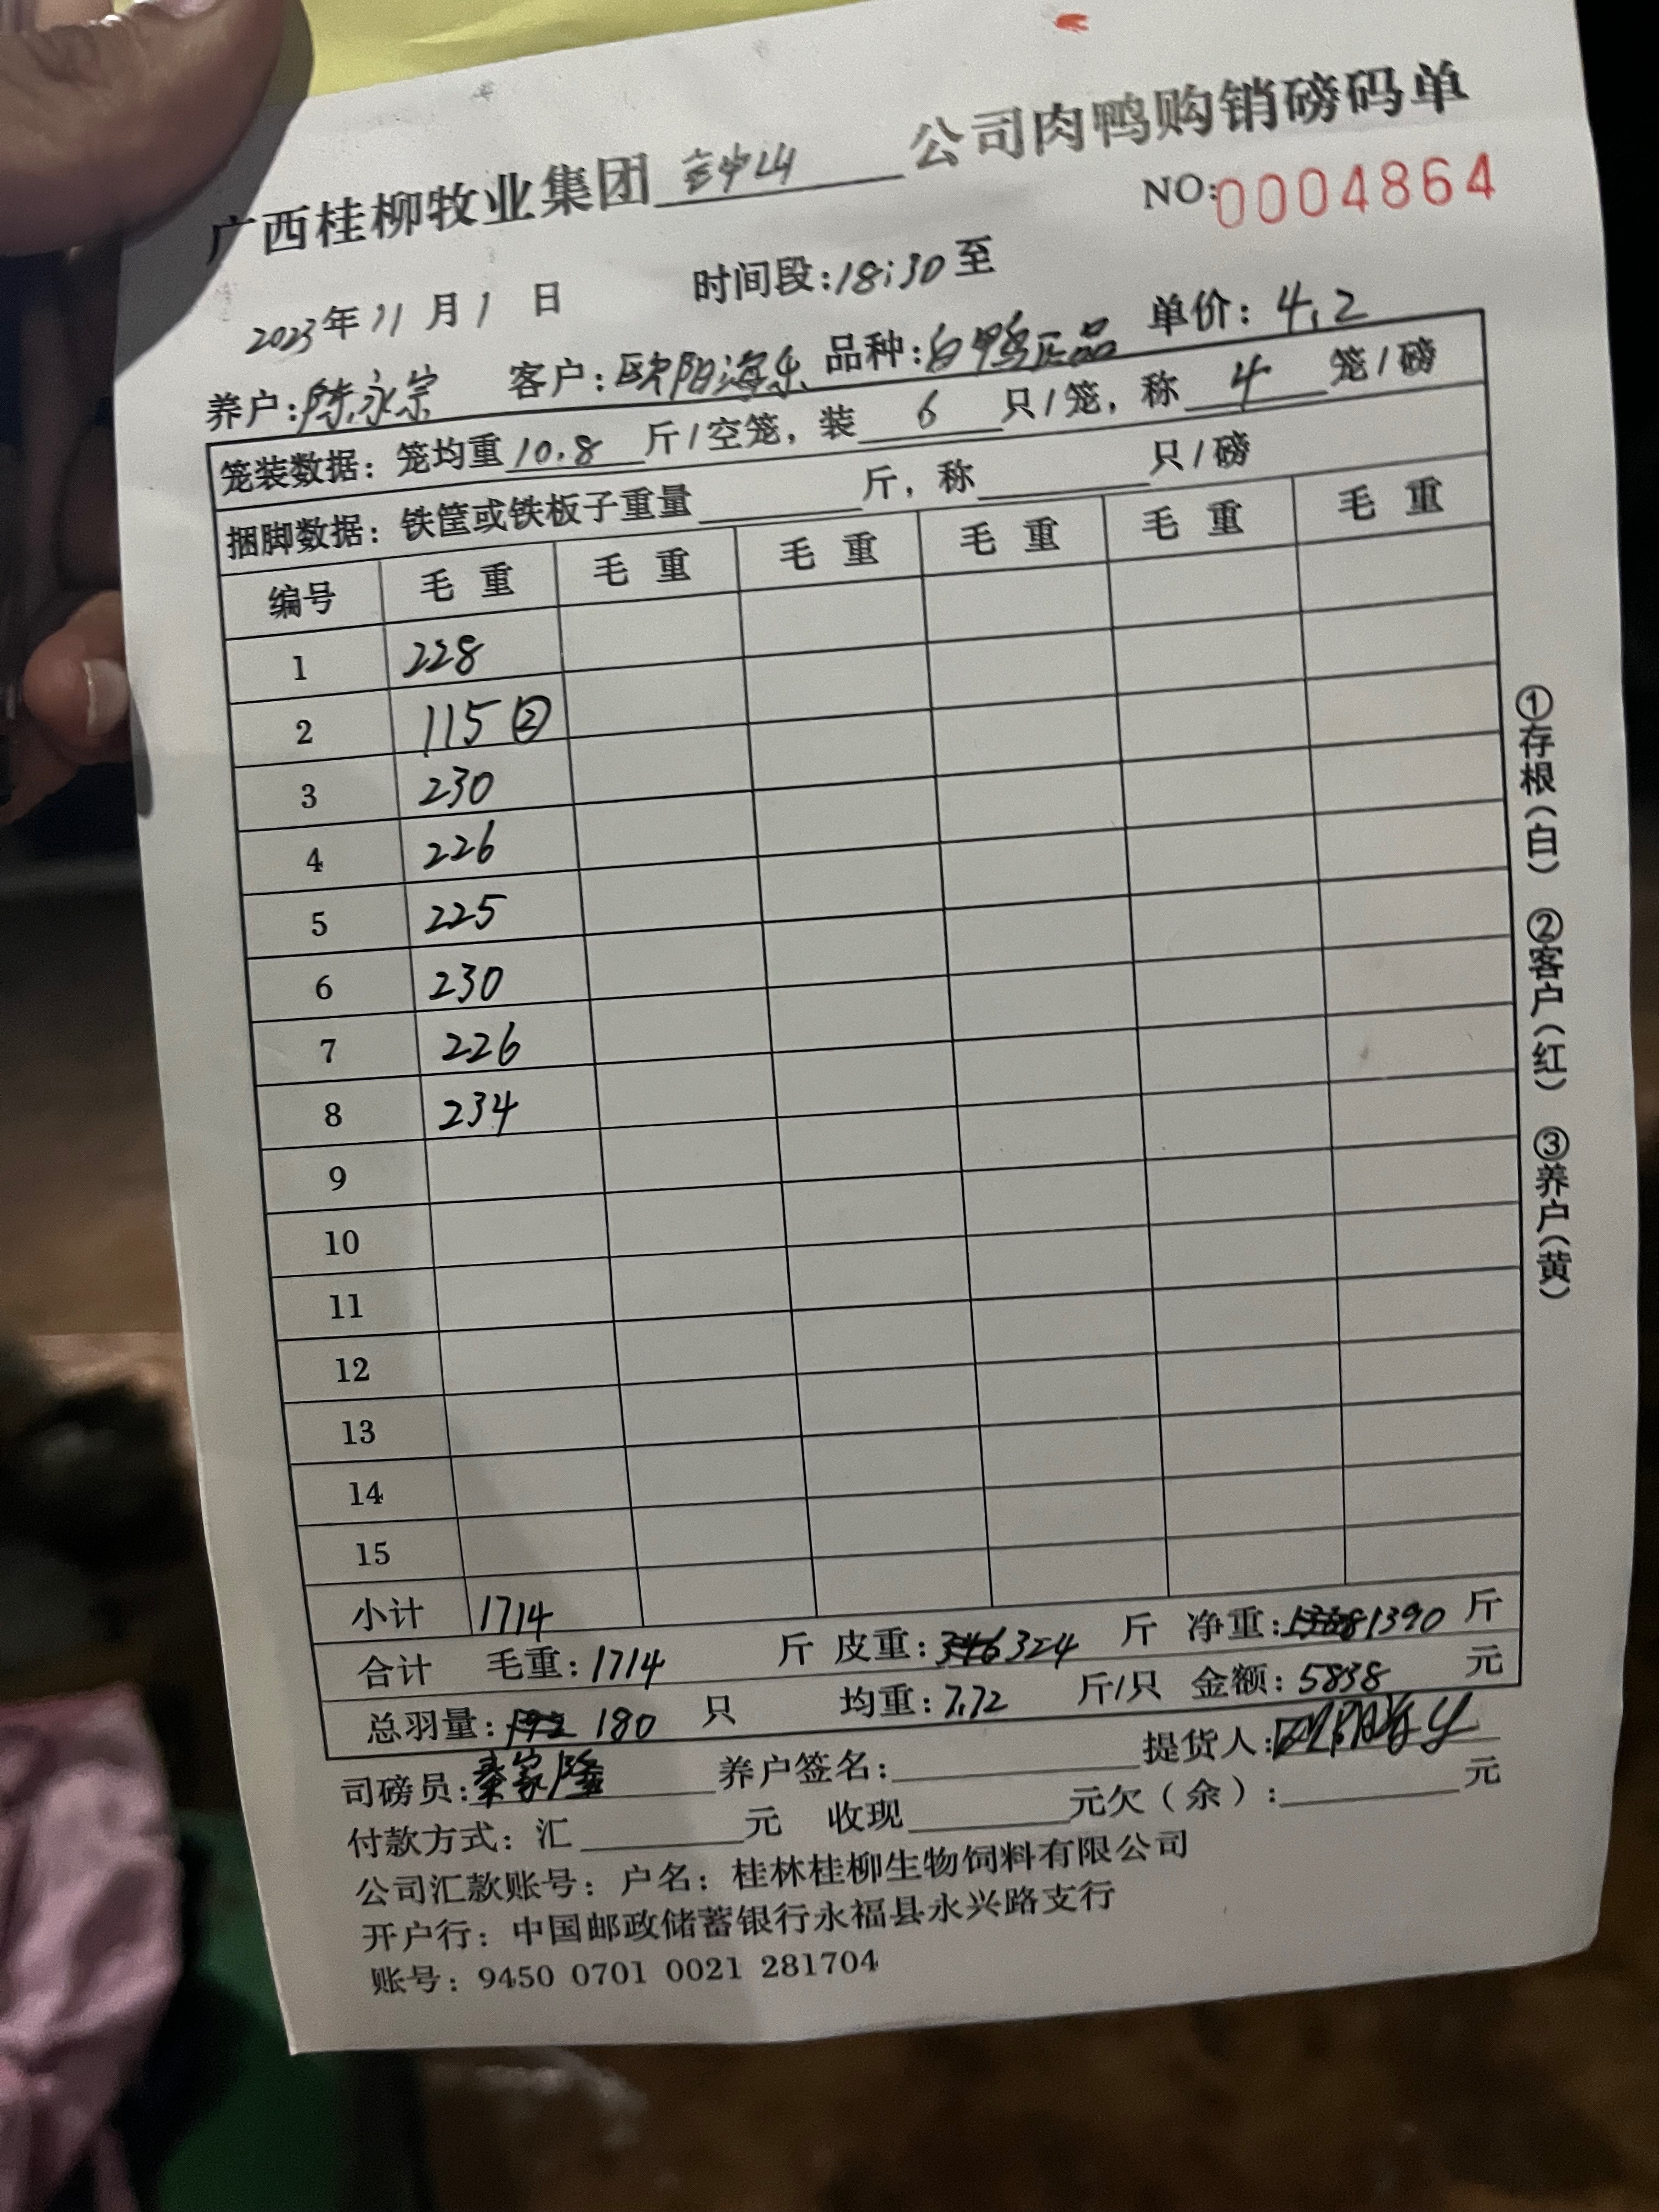 广西桂柳牧业集团 钟山 公司肉鸭购销磅码单
NO:0004864
2023年11月1日 时间段:18:30至
养户:陈永宗 客户:欧阳海乐 品种:白鸭正品 单价:4.2
笼装数据:笼均重10.8斤/空笼,装6只/笼,称4笼/磅
捆脚数据:铁筐或铁板子重量 斤,称 只/磅
编号 毛重 毛重 毛重 毛重 毛重 毛重
1 228
2 115②
3 230
4 226
5 225
6 230
7 226
8 234
9
10
11
12
13
14
15
小计 1714
合计 毛重:1714 斤 皮重:346 324 斤 净重:1390 斤
总羽量:192 180 只 均重:7.72 斤/只 金额:5838 元
司磅员:秦家隆 养户签名: 提货人:
付款方式:汇 元 收现 元欠(余): 元
公司汇款账号:户名:桂林桂柳生物饲料有限公司
开户行:中国邮政储蓄银行永福县永兴路支行
账号:9450 0701 0021 281704
①存根(白) ②客户(红) ③养户(黄)